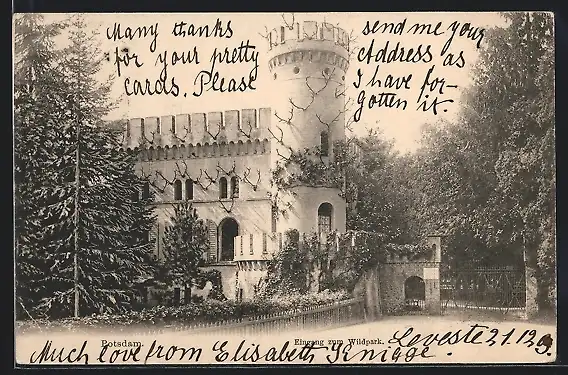 Many thanks
for your pretty
cards. Please
send me your
Address as
I have for-
gotten it.
Potsdam.
Eingang zum Wildpark.
Leveste 21.12.
Much love from Elisabeth Knigge.